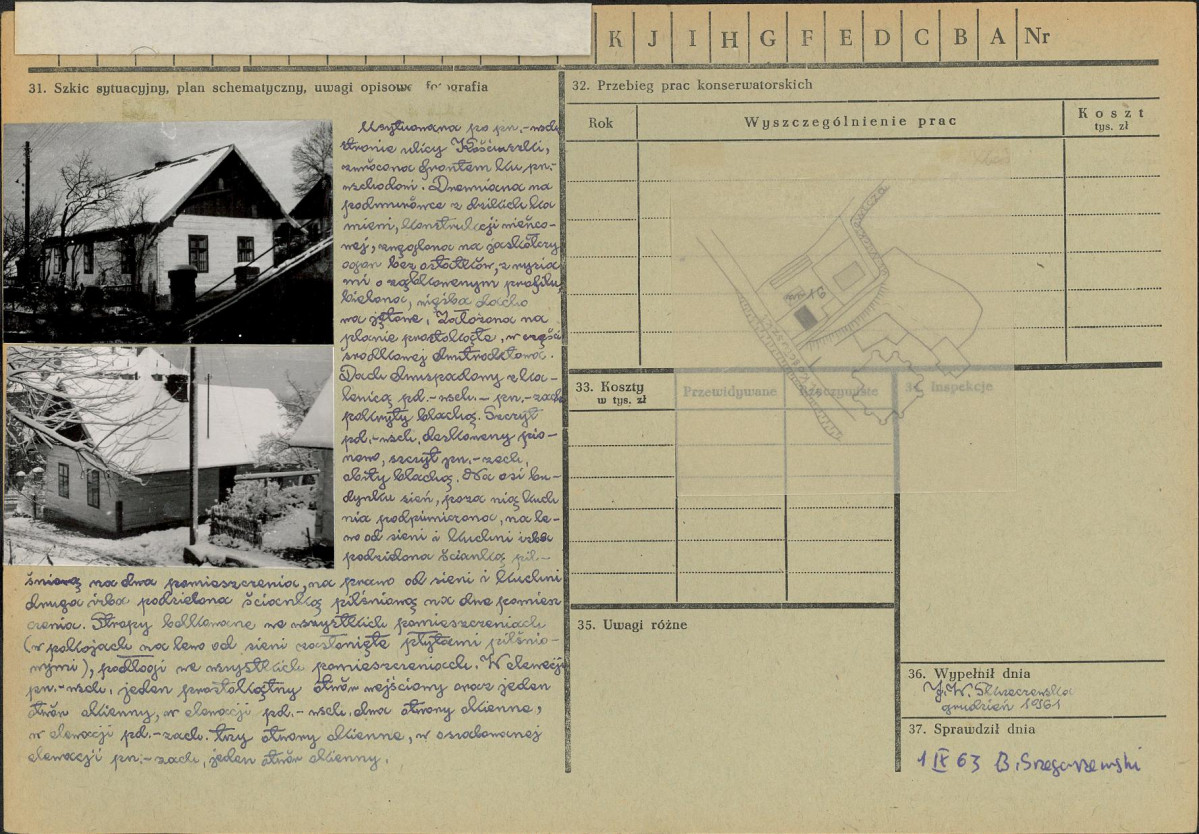 K J I H G F E D C B A Nr
31. Szkic sytuacyjny, plan schematyczny, uwagi opisowe fotografia
Usytuowana po pn.-wsch.
stronie ulicy Kościuszki,
zwrócona frontem ku pn.-
wschodowi. Drewniana na
podmurówce z dzikich ka
mieni, konstrukcji wieńco-
wej, zwęglona na jaskółczy
ogon bez ostatków, z rysia
mi o ząbkowanym profilu,
bielona, więźba dacho
wa jętowa. Założona na
planie prostokąta, w części
środkowej dwutraktowa.
Dach dwuspadowy z ka-
lenicą pd.-wsch. – pn.-zach.
pokryty blachą. Szczyt
pd.-wsch. deskowany pio-
nowo, szczyt pn.-zach.
obity blachą. Na osi bu-
dynku sień, poza nią kuch
nia podpiwniczona, na le-
wo od sieni i kuchni izba
podzielona ścianką pil-
śniową na dwa pomieszczenia, na prawo od sieni i kuchni
druga izba podzielona ścianką pilśniową na dwa pomiesz
czenia. Stropy belkowane we wszystkich pomieszczeniach
(w pokojach na lewo od sieni zasłonięte płytami pilśnio-
wymi), podłogi we wszystkich pomieszczeniach. W elewacji
pn.-wsch. jeden prostokątny otwór wejściowy oraz jeden
otwór okienny, w elewacji pd.-wsch. dwa otwory okienne,
w elewacji pd.-zach. trzy otwory okienne, w oszalowanej
elewacji pn.-zach. jeden otwór okienny.
32. Przebieg prac konserwatorskich
Rok
Wyszczególnienie prac
Koszt
tys. zł
33. Koszty
w tys. zł
Przewidywane
Rzeczywiste
34. Inspekcje
35. Uwagi różne
36. Wypełnił dnia
grudzień 1961
37. Sprawdził dnia
1 IX 63 B.